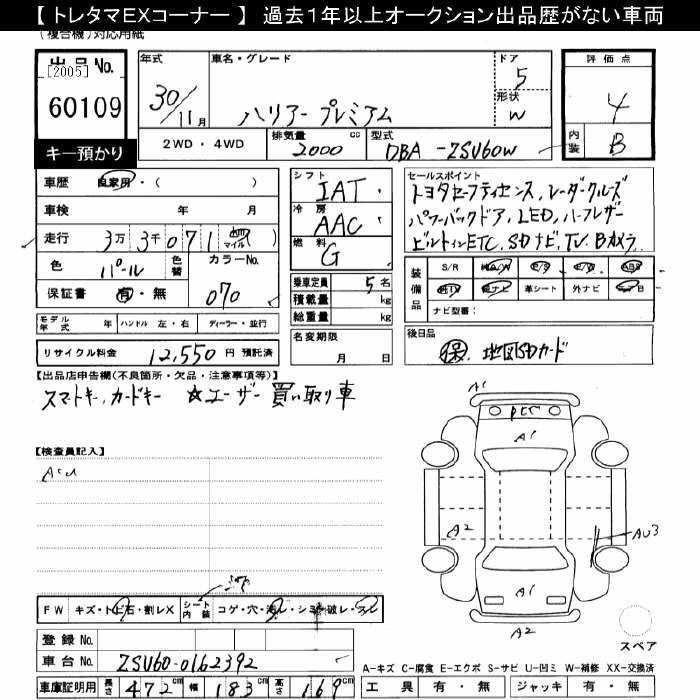 【 トレタマEXコーナー 】 過去1年以上オークション出品歴がない車両
(複合機)対応用紙
出品 No.
[2005]
60109
キー預かり
年式
30/11月
車名・グレード
ハリアー プレミアム
ドア
5
形状
W
評価点
4
内装
B
2WD ・ 4WD
排気量 cc
2000
型式
DBA -ZSU60W
車歴 自家用・( )
車検 年 月
走行 3万 3千 0 7 1 km マイル
色 パール 色替 カラーNo.
070
保証書 有・無
シフト
IAT
冷房
AAC
燃料
G
乗車定員 5 名
積載量 kg
総重量 kg
セールスポイント
トヨタセーフティセンス、レーダークルーズ
パワーバックドア、LED、ハーフレザー
ビルトインETC、SDナビ、TV、Bカメラ
装備品
S/R A/W P/S P/W ABS
純TV 純ナビ 革シート 外ナビ
ナビ型番:
モデル年式 年 ハンドル 左・右 ディーラー・並行
リサイクル料金 12,550 円 預託済
名変期限
月 日
後日品
保、地図SDカード
【出品店申告欄(不良箇所・欠品・注意事項等)】
スマートキー、カードキー ☆ユーザー買い取り車
【検査員記入】
A1
PCT
A1
A2
AU3
A1
A2
スペア
FW キズ・トビ石・割レX シート内装 コゲ・穴・汚レ・シミ・破レ・スレ
登録 No.
車台 No. ZSU60-0162392
車庫証明用 長さ 472 cm 幅 183 cm 高さ 169 cm
A-キズ C-腐食 E-エクボ S-サビ U-凹ミ W-補修 XX-交換済
工具 有・無 ジャッキ 有・無